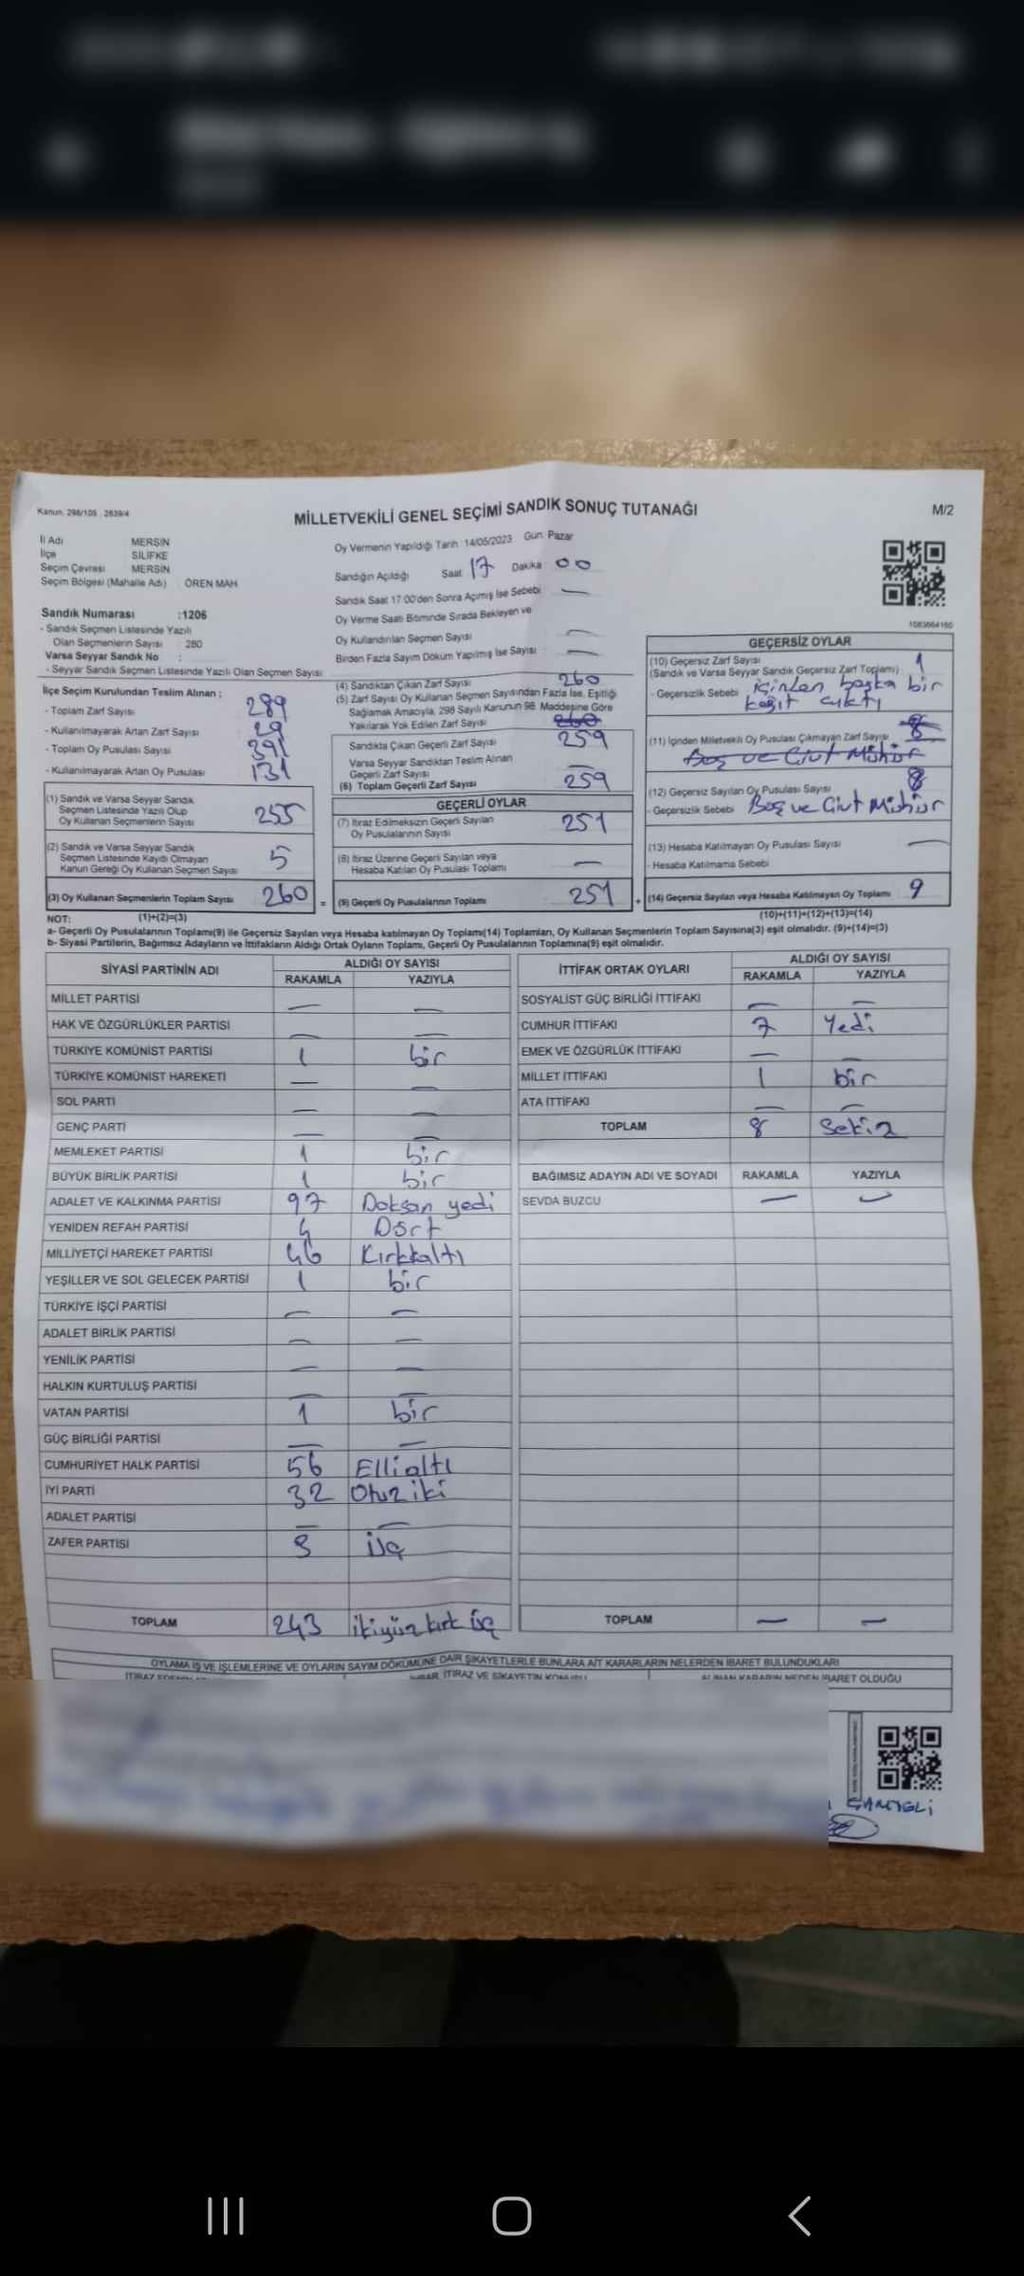 Kanun. 298/105 : 2839/4
MİLLETVEKİLİ GENEL SEÇİMİ SANDIK SONUÇ TUTANAĞI
M/2
İl Adı MERSİN
İlçe SİLİFKE
Seçim Çevresi MERSİN
Seçim Bölgesi (Mahalle Adı) ÖREN MAH
Sandık Numarası :1206
- Sandık Seçmen Listesinde Yazılı
Olan Seçmenlerin Sayısı : 280
Varsa Seyyar Sandık No :
- Seyyar Sandık Seçmen Listesinde Yazılı Olan Seçmen Sayısı
Oy Vermenin Yapıldığı Tarih 14/05/2023 Gün Pazar
Sandığın Açıldığı Saat 17 Dakika 00
Sandık Saat 17:00'den Sonra Açmış İse Sebebi —
Oy Verme Saati Bitiminde Sırada Bekleyen ve
Oy Kullandırılan Seçmen Sayısı —
Birden Fazla Sayım Döküm Yapılmış İse Sayısı —
İlçe Seçim Kurulundan Teslim Alınan :
- Toplam Zarf Sayısı 289
- Kullanılmayarak Artan Zarf Sayısı 29
- Toplam Oy Pusulası Sayısı 391
- Kullanılmayarak Artan Oy Pusulası 131
(1) Sandık ve Varsa Seyyar Sandık
Seçmen Listesinde Yazılı Olup
Oy Kullanan Seçmenlerin Sayısı 255
(2) Sandık ve Varsa Seyyar Sandık
Seçmen Listesinde Kaydı Olmayan
Kanun Gereği Oy Kullanan Seçmen Sayısı 5
(3) Oy Kullanan Seçmenlerin Toplam Sayısı 260 =
(4) Sandıktan Çıkan Zarf Sayısı 260
(5) Zarf Sayısı Oy Kullanan Seçmen Sayısından Fazla İse, Eşitliği
Sağlamak Amacıyla, 298 Sayılı Kanunun 98. Maddesine Göre
Yakılarak Yok Edilen Zarf Sayısı 260
Sandıkta Çıkan Geçerli Zarf Sayısı 259
Varsa Seyyar Sandıktan Teslim Alınan
Geçerli Zarf Sayısı —
(6) Toplam Geçerli Zarf Sayısı 259
GEÇERLİ OYLAR
(7) İtiraz Edilmeksizin Geçerli Sayılan
Oy Pusulalarının Sayısı 251
(8) İtiraz Üzerine Geçerli Sayılan veya
Hesaba Katılan Oy Pusulası Toplamı —
(9) Geçerli Oy Pusulalarının Toplamı 251 +
1083664160
GEÇERSİZ OYLAR
(10) Geçersiz Zarf Sayısı 1
(Sandık ve Varsa Seyyar Sandık Geçersiz Zarf Toplamı)
- Geçersizlik Sebebi içinden başka bir
kağıt çıktı
(11) İçinden Milletvekili Oy Pusulası Çıkmayan Zarf Sayısı 8
Boş ve Çivt Mühür
(12) Geçersiz Sayılan Oy Pusulası Sayısı 8
- Geçersizlik Sebebi Boş ve Çivt Mühür
(13) Hesaba Katılmayan Oy Pusulası Sayısı —
- Hesaba Katılmama Sebebi
(14) Geçersiz Sayılan veya Hesaba Katılmayan Oy Toplamı 9
NOT: (1)+(2)=(3) (10)+(11)+(12)+(13)=(14)
a- Geçerli Oy Pusulalarının Toplamı(9) ile Geçersiz Sayılan veya Hesaba katılmayan Oy Toplamı(14) Toplamları, Oy Kullanan Seçmenlerin Toplam Sayısına(3) eşit olmalıdır. (9)+(14)=(3)
b- Siyasi Partilerin, Bağımsız Adayların ve İttifakların Aldığı Ortak Oyların Toplamı, Geçerli Oy Pusulalarının Toplamına(9) eşit olmalıdır.
SİYASİ PARTİNİN ADI ALDIĞI OY SAYISI
RAKAMLA YAZIYLA
MİLLET PARTİSİ — —
HAK VE ÖZGÜRLÜKLER PARTİSİ — —
TÜRKİYE KOMÜNİST PARTİSİ 1 bir
TÜRKİYE KOMÜNİST HAREKETİ — —
SOL PARTİ — —
GENÇ PARTİ — —
MEMLEKET PARTİSİ 1 bir
BÜYÜK BİRLİK PARTİSİ 1 bir
ADALET VE KALKINMA PARTİSİ 97 Doksan yedi
YENİDEN REFAH PARTİSİ 4 Dört
MİLLİYETÇİ HAREKET PARTİSİ 46 Kırkkaltı
YEŞİLLER VE SOL GELECEK PARTİSİ 1 bir
TÜRKİYE İŞÇİ PARTİSİ — —
ADALET BİRLİK PARTİSİ — —
YENİLİK PARTİSİ — —
HALKIN KURTULUŞ PARTİSİ — —
VATAN PARTİSİ 1 bir
GÜÇ BİRLİĞİ PARTİSİ — —
CUMHURİYET HALK PARTİSİ 56 Ellialtı
İYİ PARTİ 32 Otuziki
ADALET PARTİSİ — —
ZAFER PARTİSİ 3 üç
TOPLAM 243 ikiyüzkırk üç
İTTİFAK ORTAK OYLARI ALDIĞI OY SAYISI
RAKAMLA YAZIYLA
SOSYALİST GÜÇ BİRLİĞİ İTTİFAKI — —
CUMHUR İTTİFAKI 7 Yedi
EMEK VE ÖZGÜRLÜK İTTİFAKI — —
MİLLET İTTİFAKI 1 bir
ATA İTTİFAKI — —
TOPLAM 8 Sekiz
BAĞIMSIZ ADAYIN ADI VE SOYADI RAKAMLA YAZIYLA
SEVDA BUZCU — —
TOPLAM — —
OYLAMA İŞ VE İŞLEMLERİNE VE OYLARIN SAYIM DÖKÜMÜNE DAİR ŞİKAYETLERLE BUNLARA AİT KARARLARIN NELERDEN İBARET BULUNDUKLARI
İTİRAZ VE ŞİKAYETİN KONUSU
ALINAN KARARIN NEDEN İBARET OLDUĞU